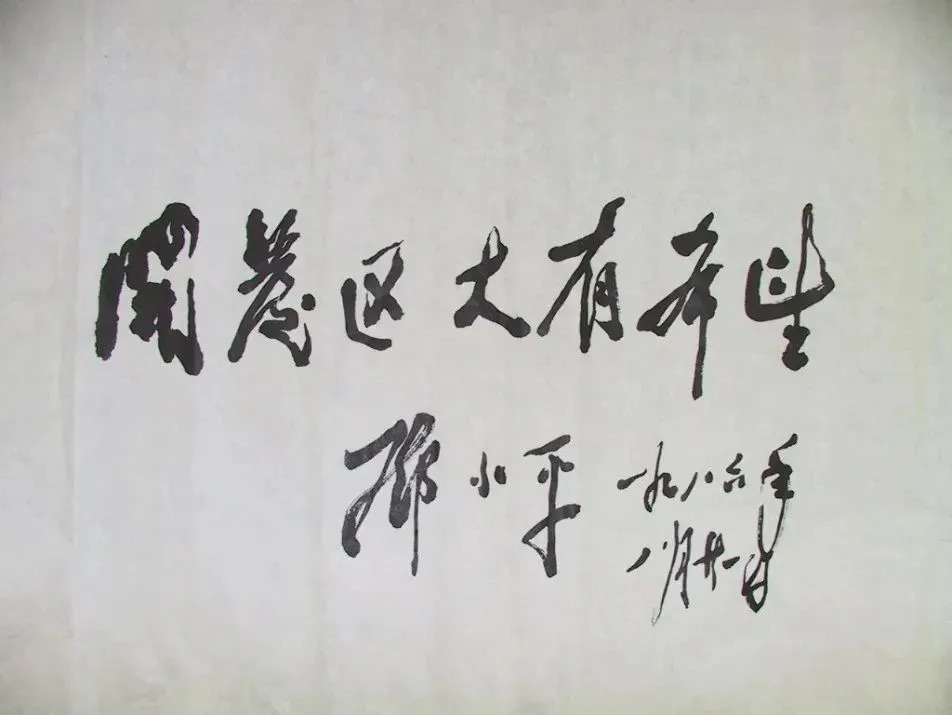 開發区大有希望
邓小平 一九八六年
八月廿一日